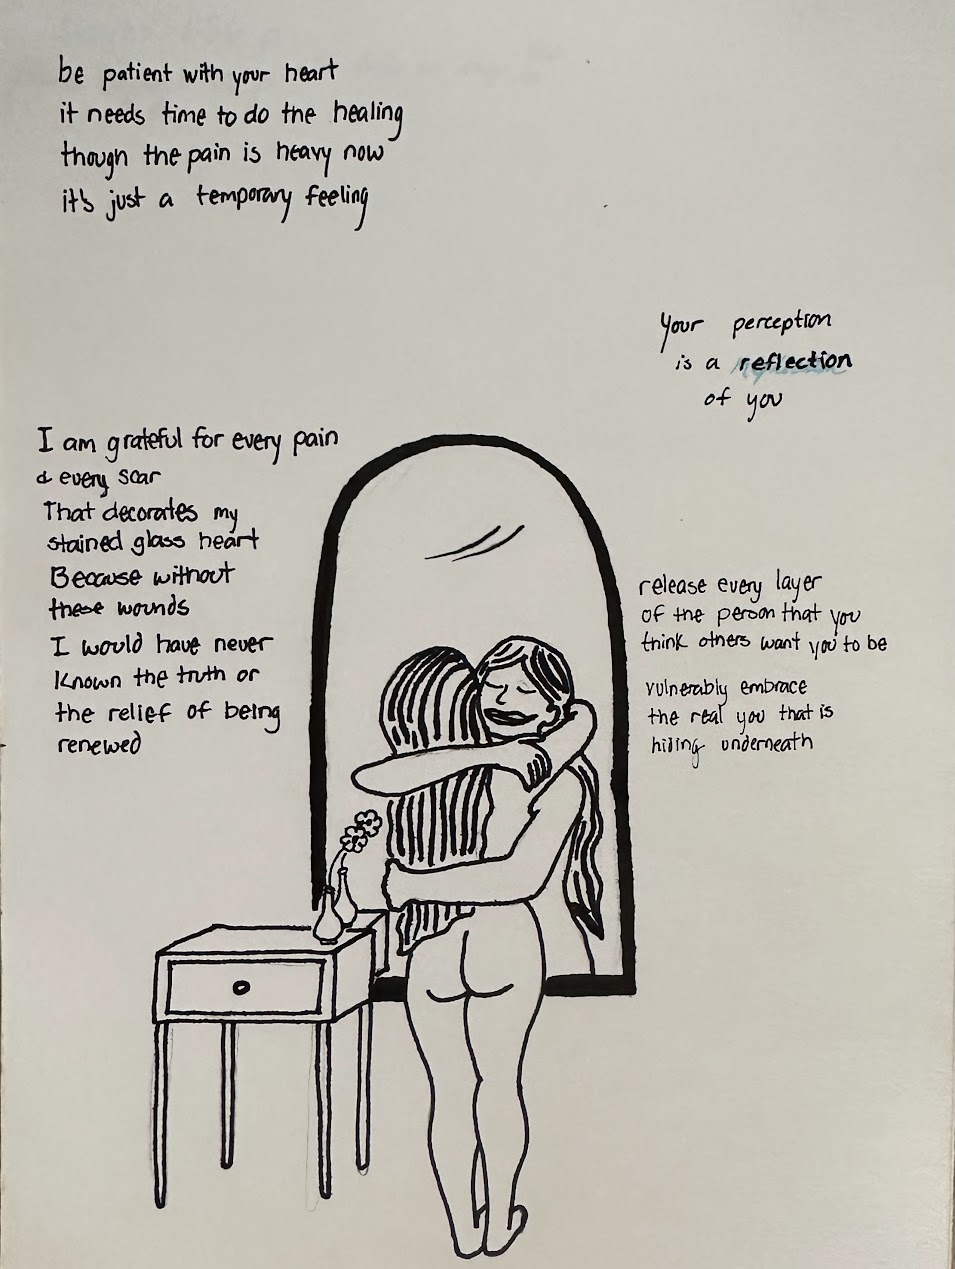 be patient with your heart
it needs time to do the healing
though the pain is heavy now
it's just a temporary feeling
Your perception
is a reflection
of you
I am grateful for every pain
& every scar
That decorates my
stained glass heart
Because without
these wounds
I would have never
known the truth or
the relief of being
renewed
release every layer
of the person that you
think others want you to be
vulnerably embrace
the real you that is
hiding underneath